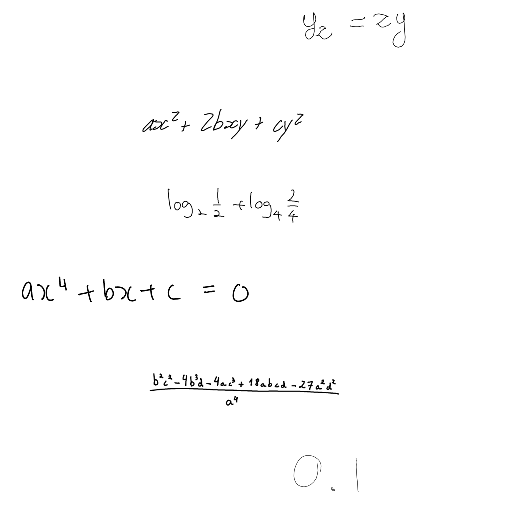 yz = zy
ax² + 2bxy + cy²
log₂ 1/2 + log₄ 2/4
ax⁴ + bx + c = 0
(b²c² - 4b³d - 4ac³ + 18abcd - 27a²d²)/a⁴
0.1